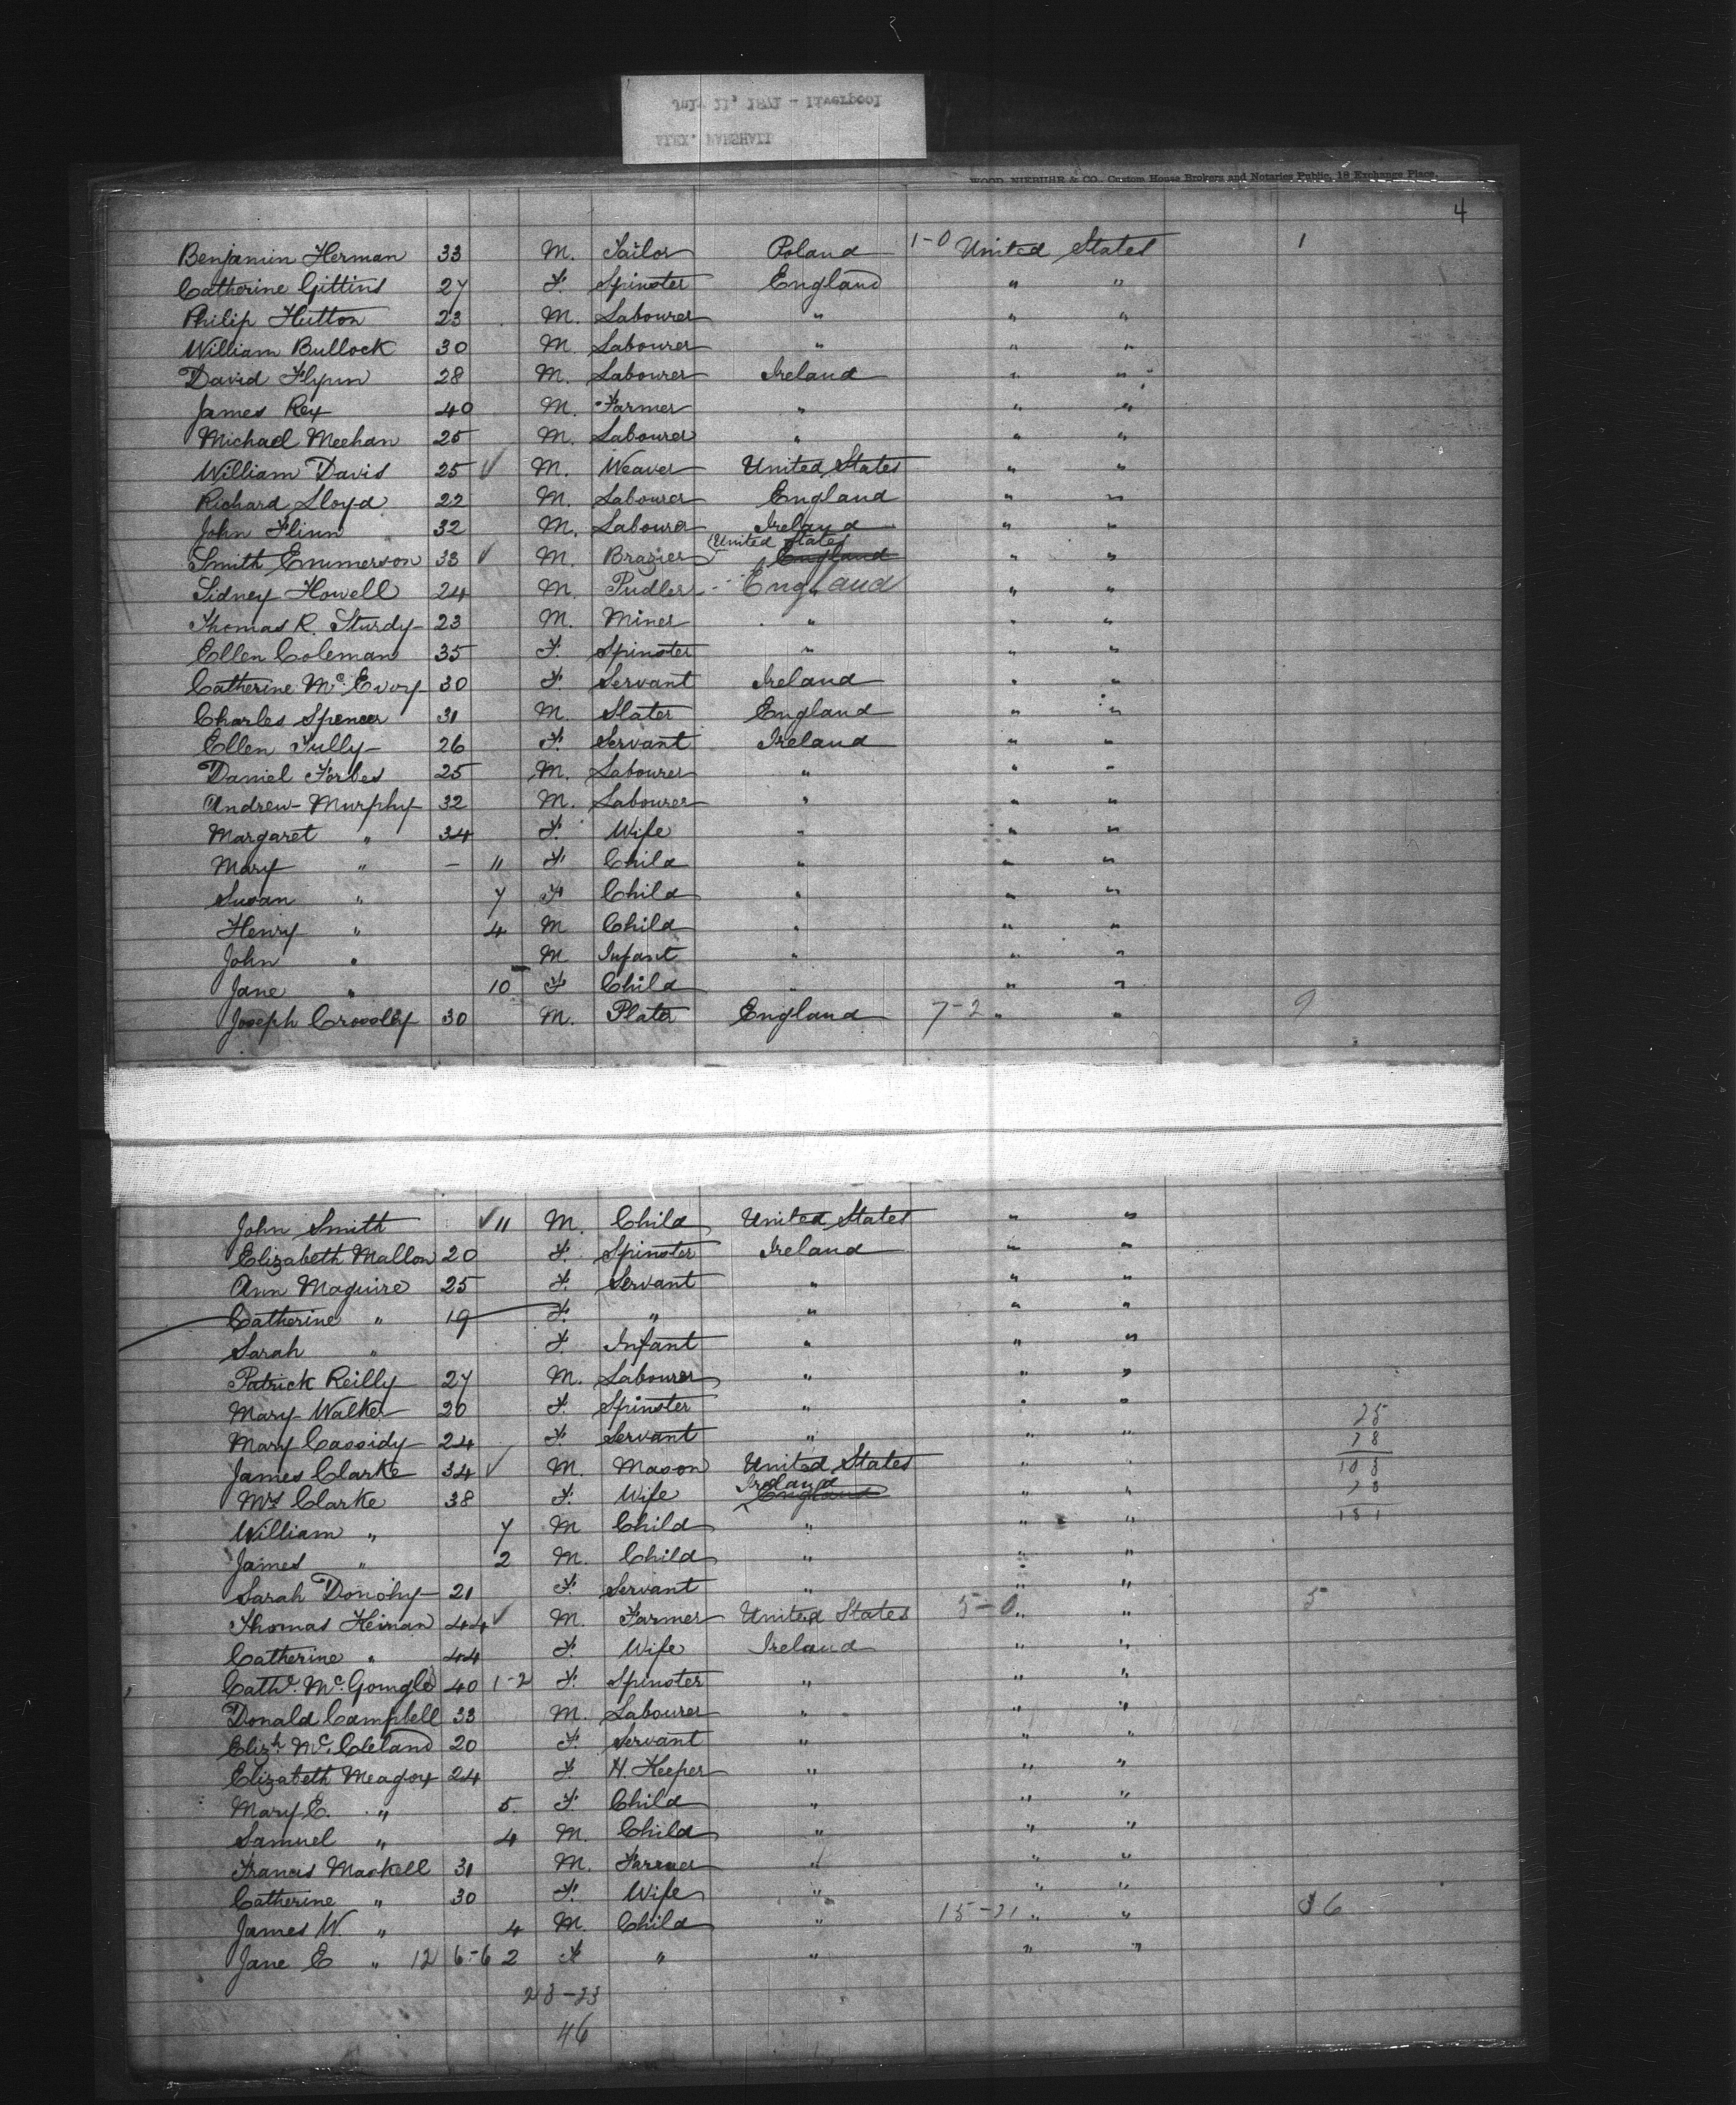 July 11, 1871 - Liverpool
ALEX. MARSHALL
WOOD, NIEBUHR & CO., Custom House Brokers and Notaries Public, 18 Exchange Place.
4
Benjamin Herman 33 M. Tailor Poland 1-0 United States 1
Catherine Gittins 27 F. Spinster England " "
Philip Hutton 23 M. Labourer " " "
William Bullock 30 M. Labourer " " "
David Flynn 28 M. Labourer Ireland " "
James Rex 40 M. Farmer " " "
Michael Meehan 25 M. Labourer " " "
William Davis 25 ✓ M. Weaver United States " "
Richard Lloyd 22 M. Labourer England " "
John Flinn 32 M. Labourer Ireland " "
Smith Emmerson 33 ✓ M. Brazier United States England " "
Sidney Howell 24 M. Pudler England " "
Thomas R. Sturdy 23 M. Miner " " "
Ellen Coleman 35 F. Spinster " " "
Catherine Mc.Evoy 30 F. Servant Ireland " "
Charles Spencer 31 M. Slater England " "
Ellen Tully 26 F. Servant Ireland " "
Daniel Forbes 25 M. Labourer " " "
Andrew Murphy 32 M. Labourer " " "
Margaret " 34 F. Wife " " "
Mary " - 11 F. Child " " "
Susan " 7 F. Child " " "
Henry " 4 M Child " " "
John " M Infant " " "
Jane " 10 F Child " " "
Joseph Crossley 30 M. Plater England 7-2 " " 9
John Smith ✓ 11 M. Child United States " "
Elizabeth Mallon 20 F. Spinster Ireland " "
Ann Maguire 25 F. Servant " " "
Catherine " 19 F. " " " "
Sarah " F. Infant " " "
Patrick Reilly 27 M. Labourer " " "
Mary Walker 20 F. Spinster " " " 25
Mary Cassidy 24 F. Servant " " " 78
James Clarke 34 ✓ M. Mason United States " " 103
Mrs Clarke 38 F. Wife Ireland England " " 78
William " 7 M Child " " " 181
James " 2 M. Child " " "
Sarah Donohy 21 F. Servant " " "
Thomas Heinan 44 ✓ M. Farmer United States 5-0 " " 5
Catherine " 44 F. Wife Ireland " "
Cathe. Mc. 40 1-2 F. Spinster " " "
Donald Campbell 33 M. Labourer " " "
Elizh. Mc.Cleland 20 F. Servant " " "
Elizabeth Meagoy 24 F. H. Keeper " " "
Mary E. " 5. F. Child " " "
Samuel " 4 M. Child " " "
Francis Maskell 31 M. Farmer " " "
Catherine " 30 F. Wife " " "
James W. " 4 M. Child " 15-21 " " 36
Jane E " 12 6-6 2 F " " " "
23-23
46